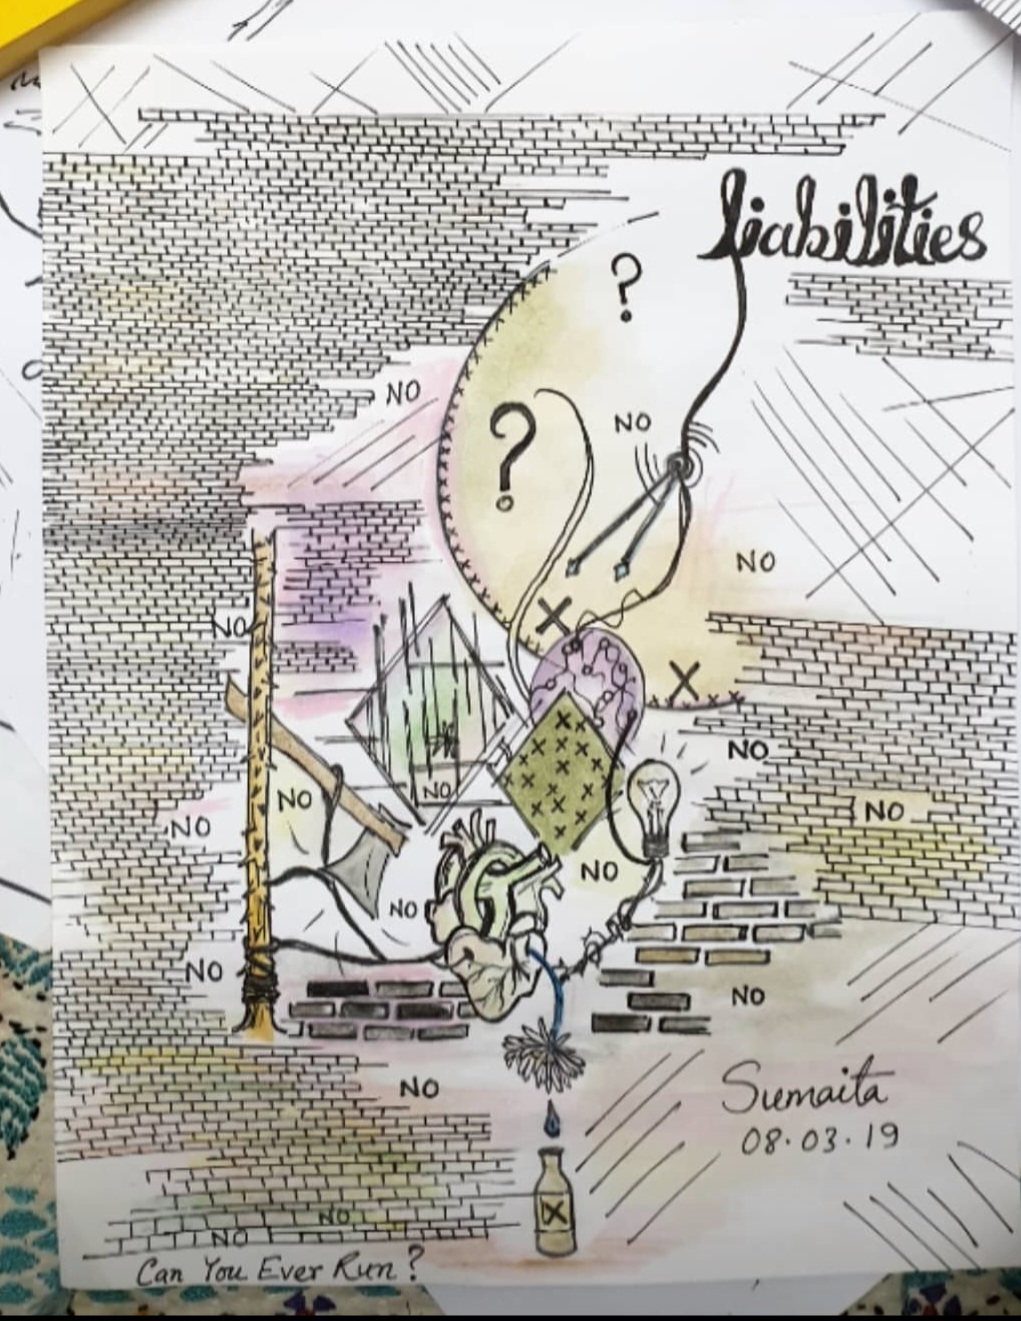 liabilities
?
NO
?
NO
NO
NO
NO
NO
NO
NO
NO
NO
NO
NO
NO
NO
Sumaita
08.03.19
X
NO
NO
Can You Ever Run?